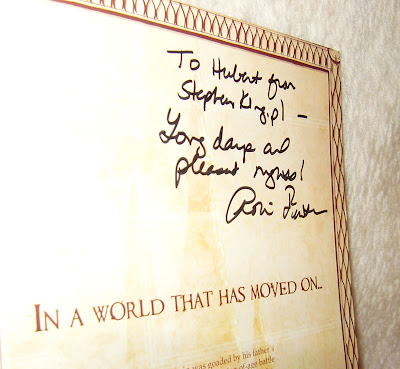 To Hubert from
Stephen King.pl –
Long days and
pleasant nights!
Robin Furth
IN A WORLD THAT HAS MOVED ON...
was goaded by his father's
of-age battle